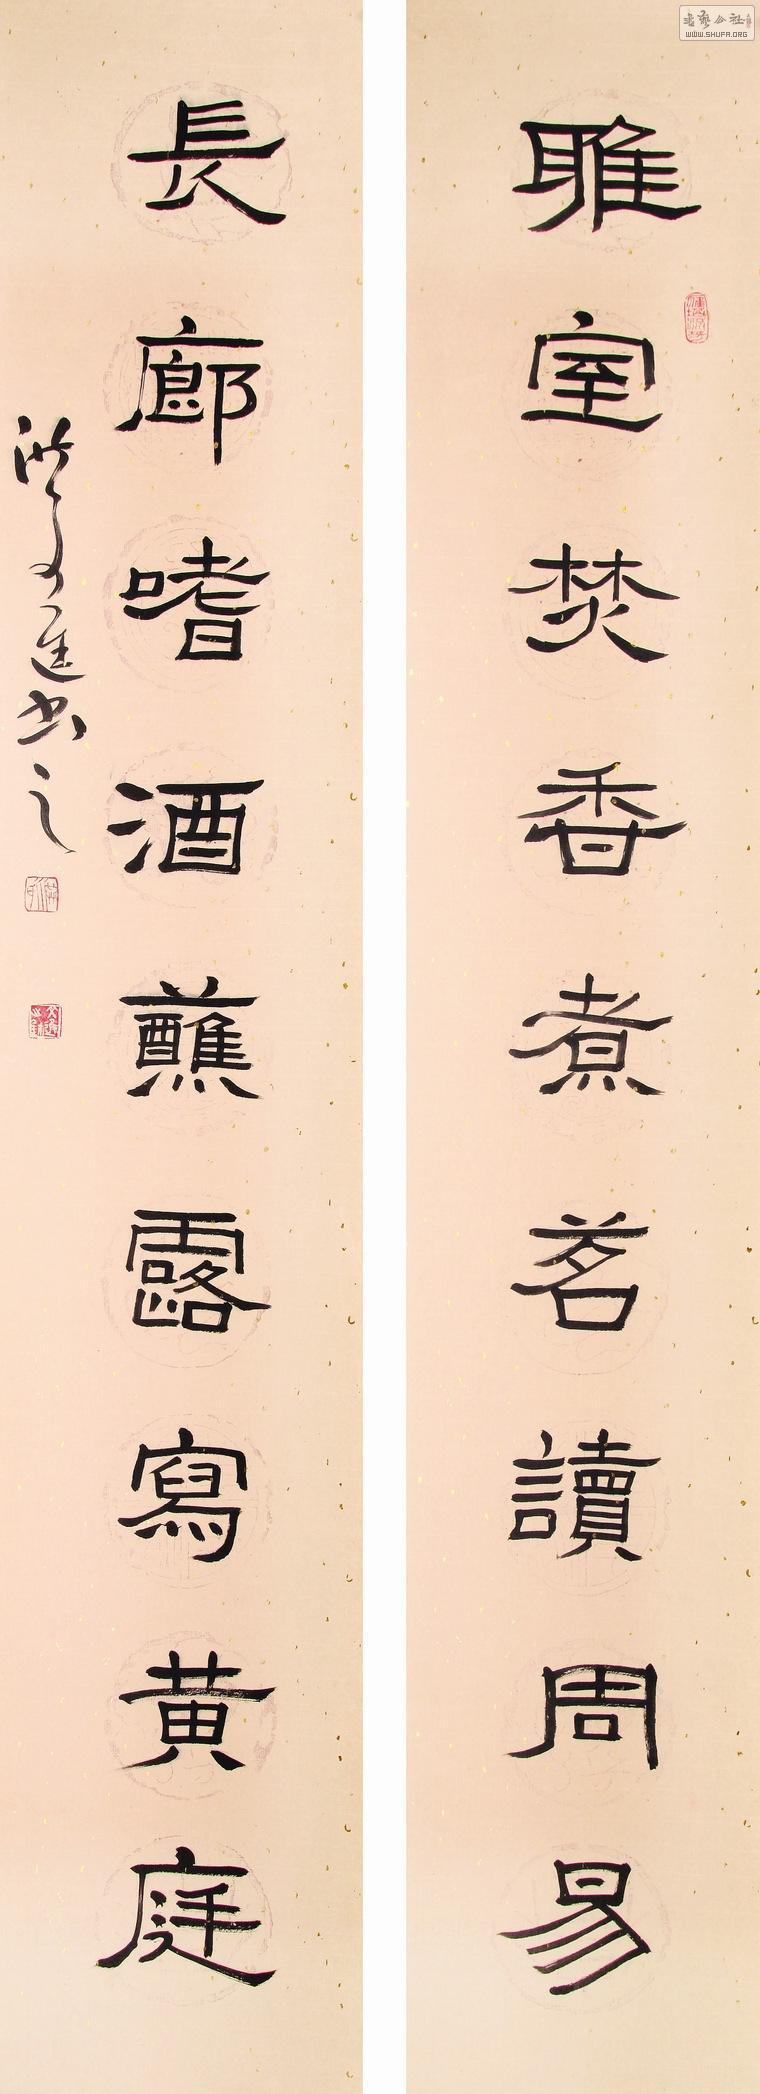 雅室焚香煮茗讀周易
長廊嗜酒蘸露寫黄庭
書之
書藝公社
WWW.SHUFA.ORG